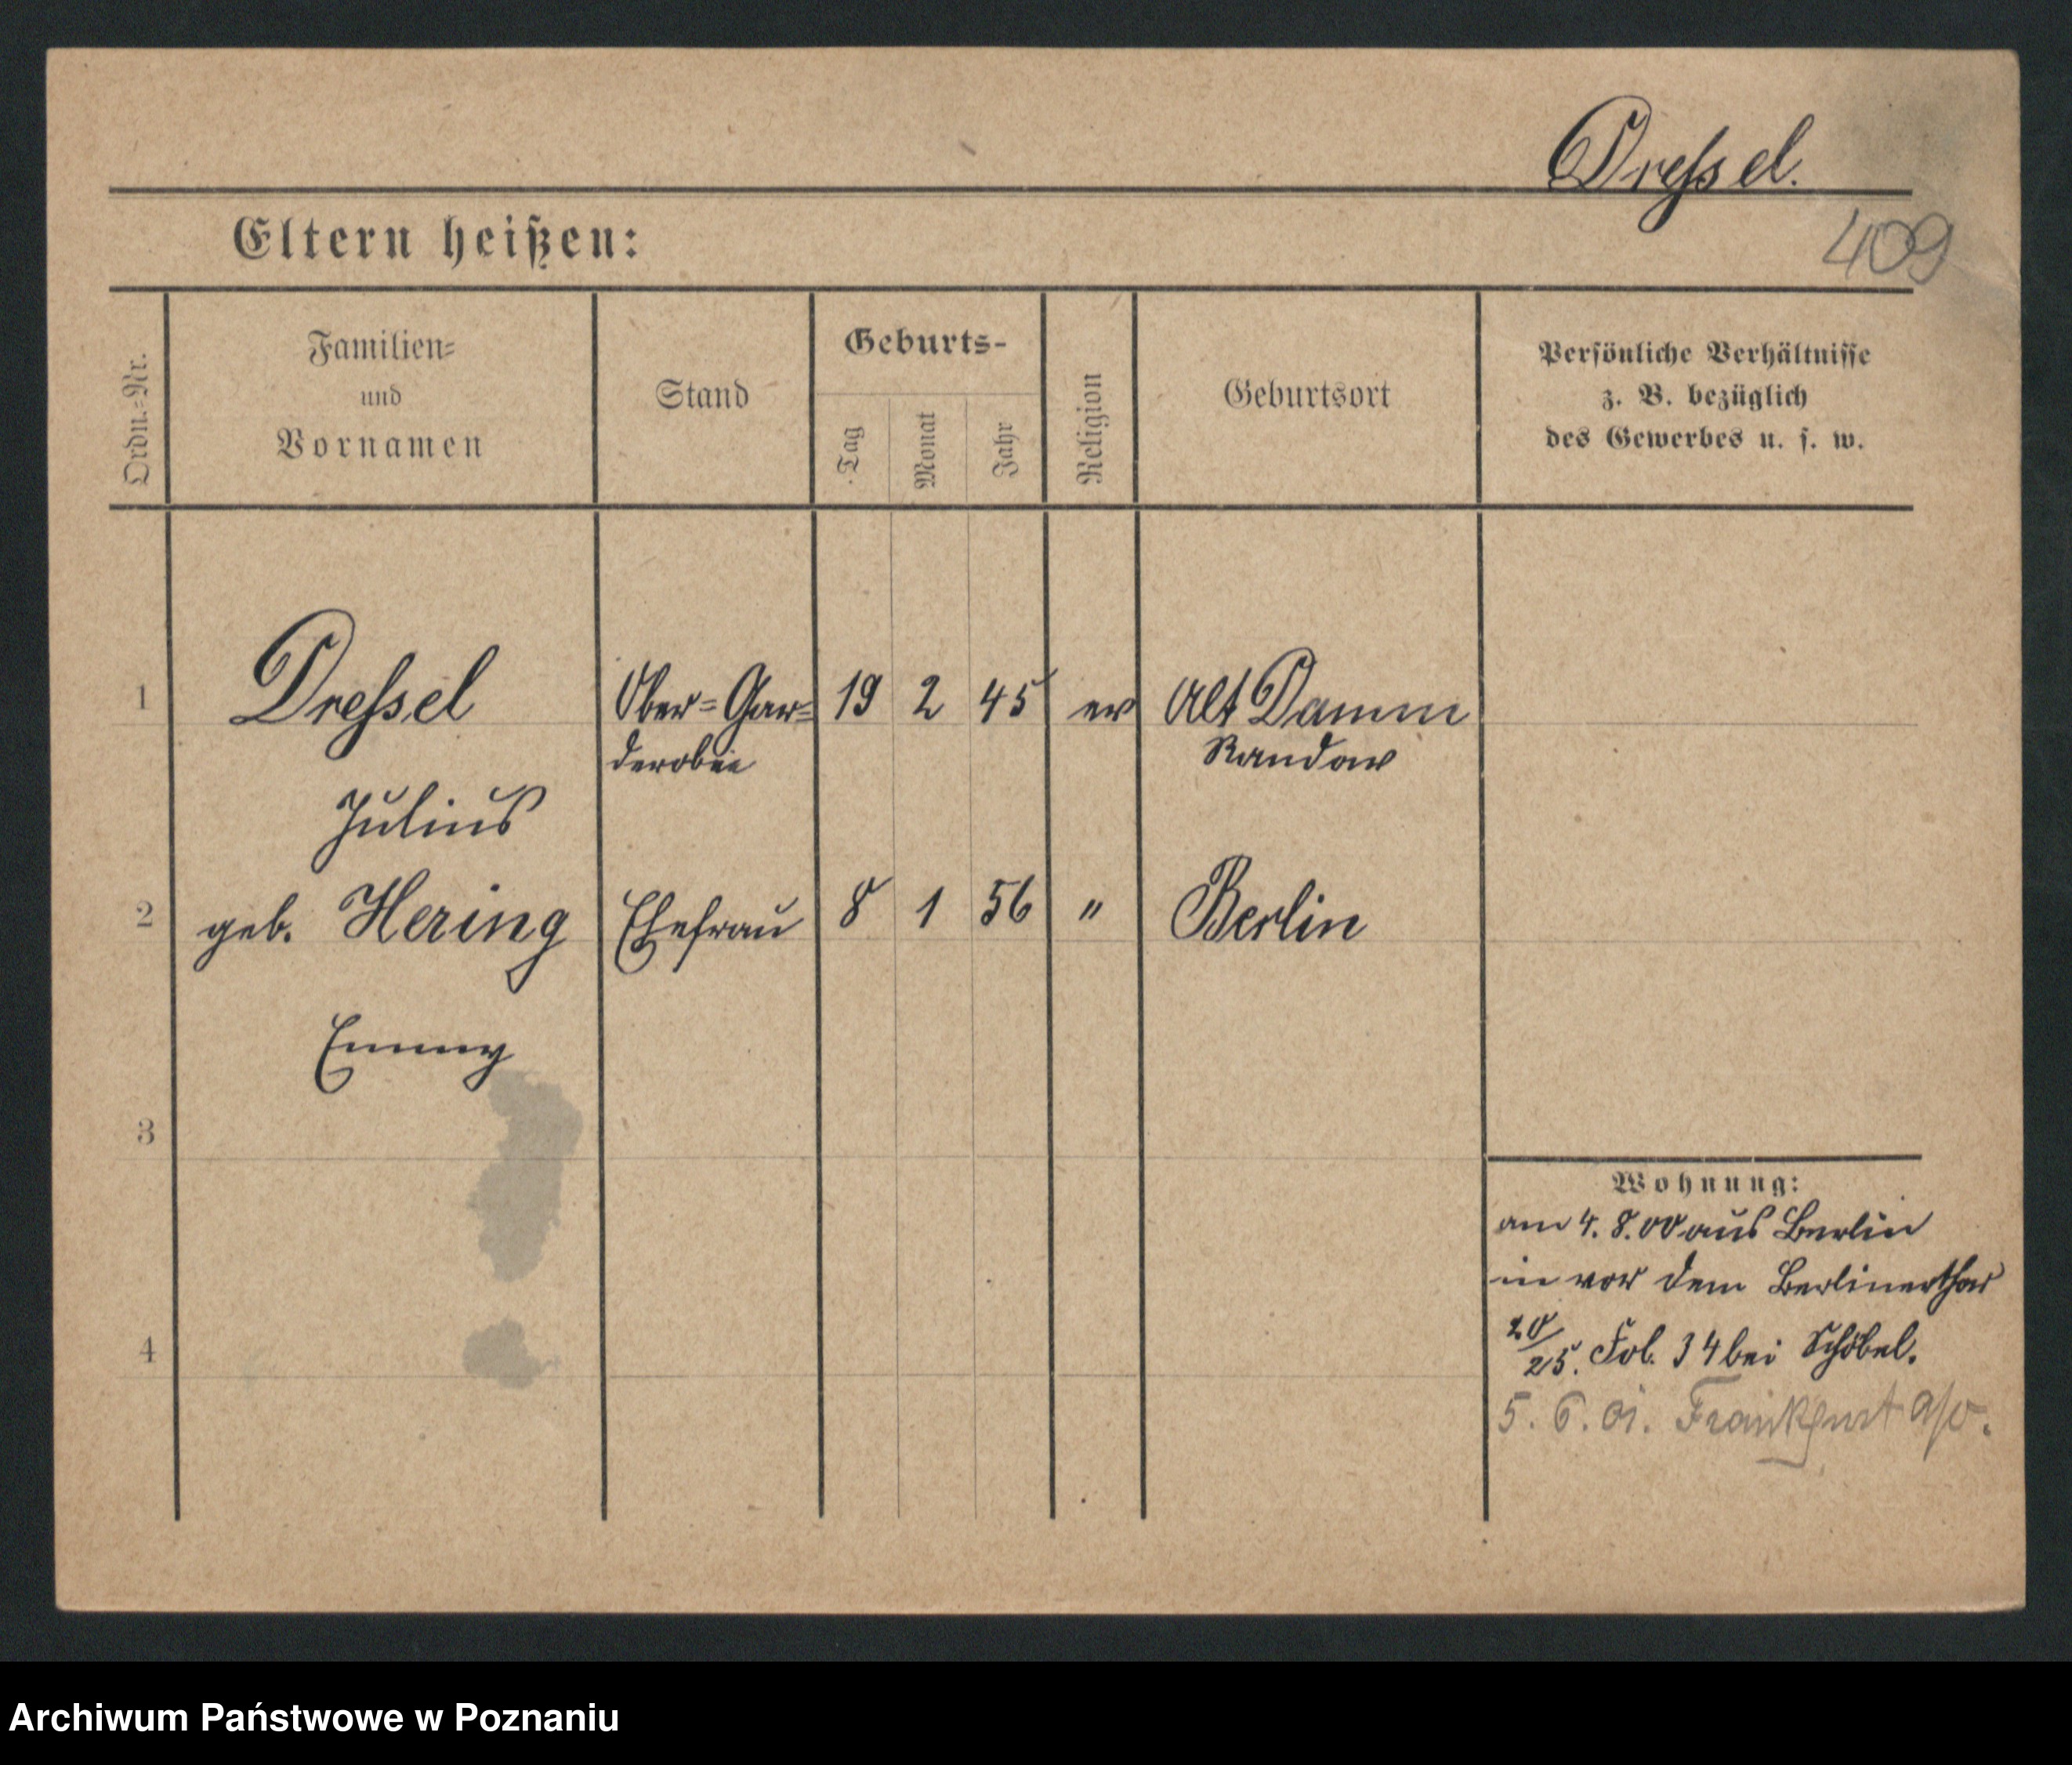 Dreſsel.
409
Eltern heißen:
Ordn.=Nr.
Familien=
und
Vornamen
Stand
Geburts-
Tag
Monat
Jahr
Religion
Geburtsort
Persönliche Verhältnisse
z. B. bezüglich
des Gewerbes u. s. w.
1 Dreſsel Ober=Gar= 19 2 45 ev Alt Damm
derobie Randow
Julius
2 geb. Hering Ehefrau 8 1 56 " Berlin
Emmy
3
Wohnung:
am 4. 8. 00 aus Berlin
in vor dem Berlinerthor
20/25. Fol. 34 bei Schöbel.
4
5. 6. 01. Frankfurt a/o.
Archiwum Państwowe w Poznaniu